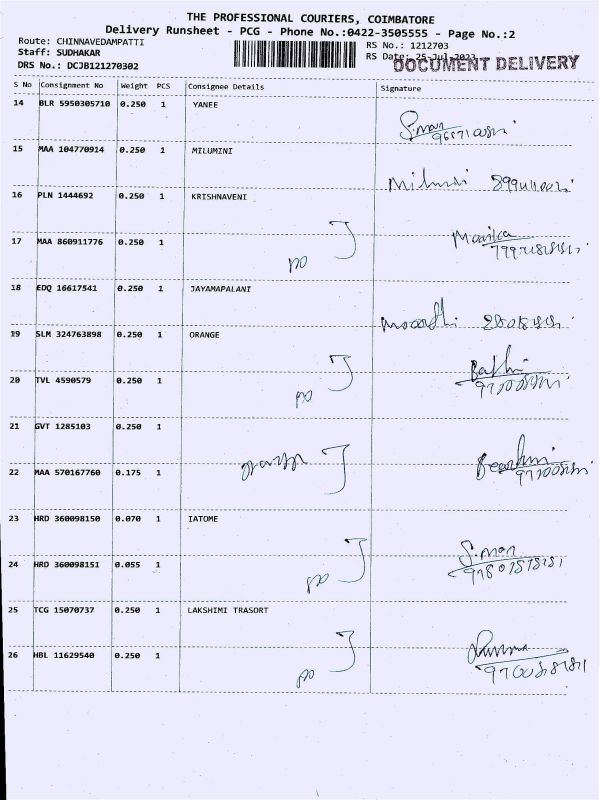 THE PROFESSIONAL COURIERS, COIMBATORE
Delivery Runsheet - PCG - Phone No.:0422-3505555 - Page No.:2
Route: CHINNAVEDAMPATTI
RS No.: 1212703
Staff: SUDHAKAR
RS Date: 25-Jul-2023
DOCUMENT DELIVERY
DRS No.: DCJB121270302
S No Consignment No Weight PCS Consignee Details Signature
14 BLR 5950305710 0.250 1 YANEE
Simon
15 MAA 104770914 0.250 1 MILUMINI
16 PLN 1444692 0.250 1 KRISHNAVENI
Monica
17 MAA 860911776 0.250 1
po
18 EDQ 16617541 0.250 1 JAYAMAPALANI
19 SLM 324763898 0.250 1 ORANGE
20 TVL 4590579 0.250 1
po
21 GVT 1285103 0.250 1
22 MAA 570167760 0.175 1
23 HRD 360098150 0.070 1 IATOME
Simon
24 HRD 360098151 0.055 1
po
25 TCG 15070737 0.250 1 LAKSHIMI TRASORT
26 HBL 11629540 0.250 1
po